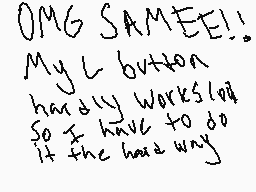 OMG SAMEE!!
My L button
hardly works lol
So I have to do
it the hard way